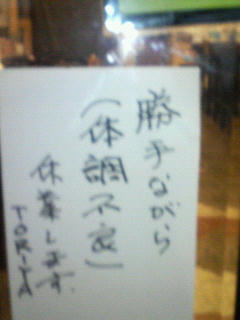 勝手ながら
(体調不良)
休業します.
TORIYA